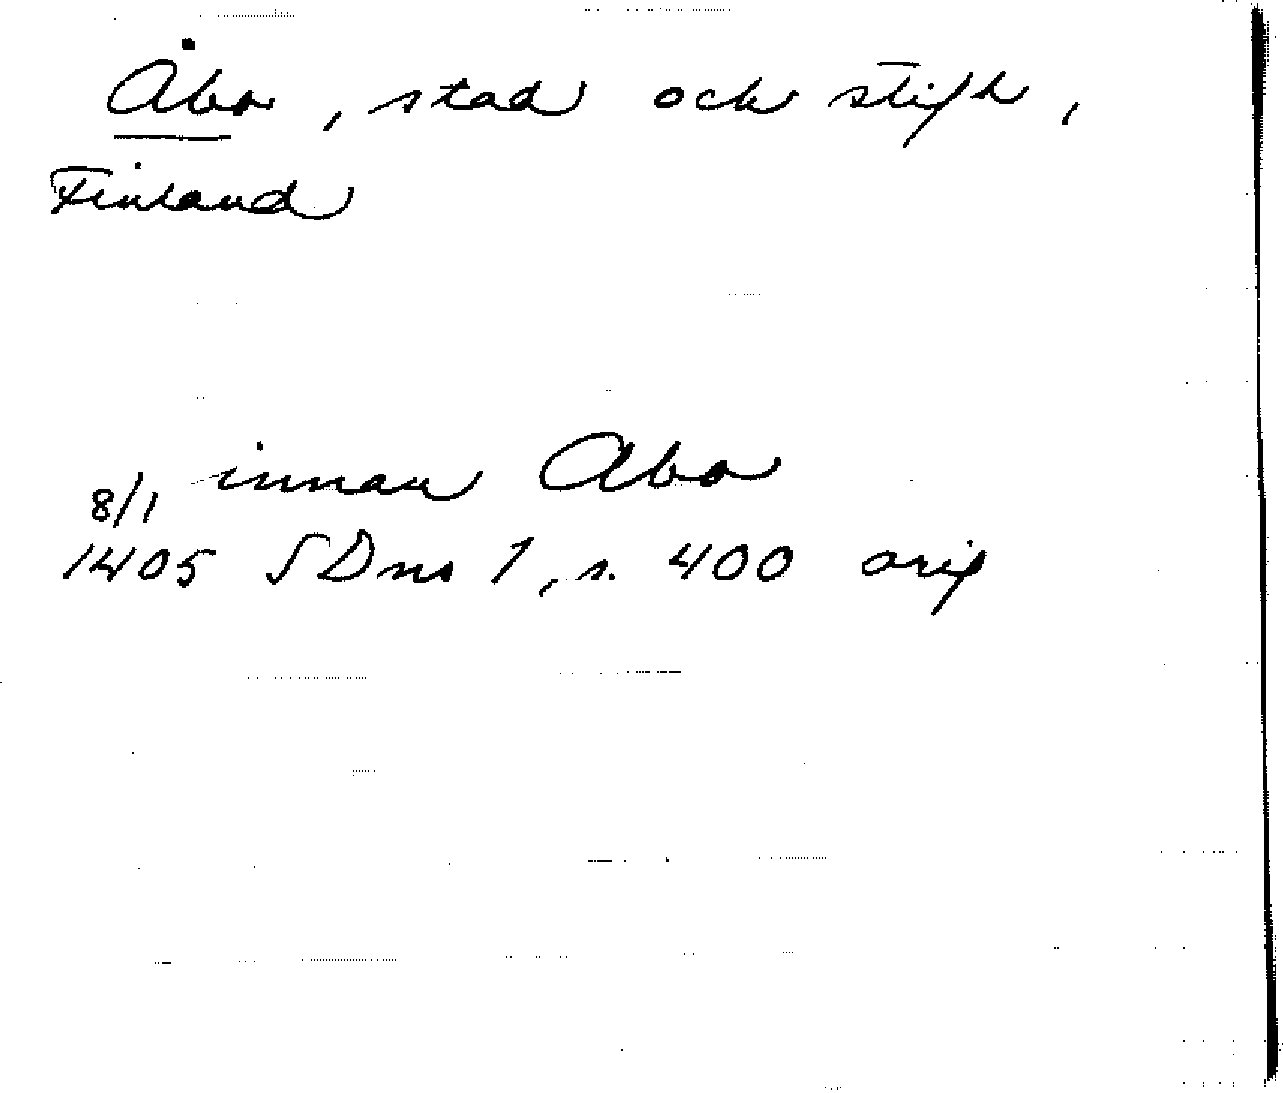 Åbo, stad och stift,
Finland
innan Abo
8/1
1405 SDns 1, s. 400 orig